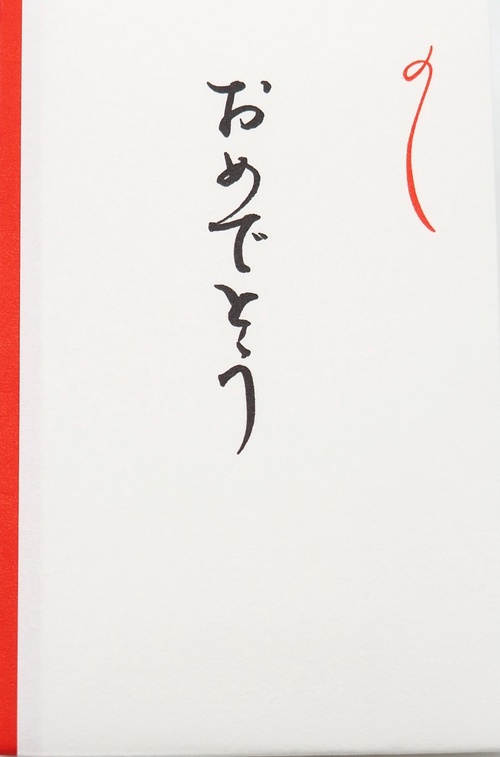 おめでとう
のし